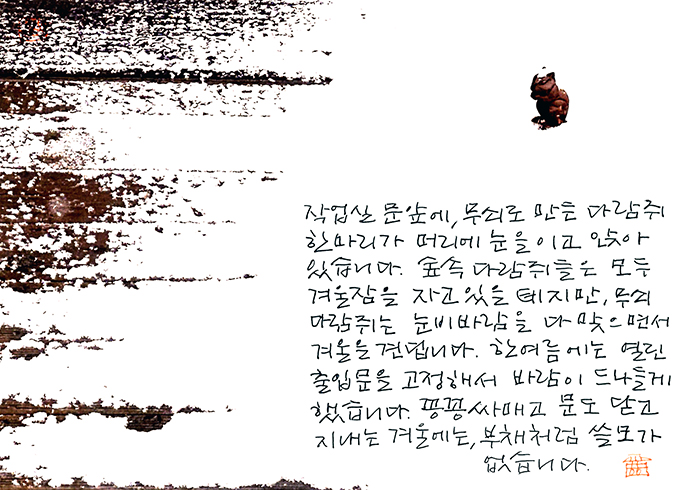 작업실 문앞에, 무쇠로 만든 다람쥐
한마리가 머리에 눈을 이고 앉아
있습니다. 숲속 다람쥐들은 모두
겨울잠을 자고 있을 테지만, 무쇠
다람쥐는 눈비바람을 다 맞으면서
겨울을 견딥니다. 한여름에는 열린
출입문을 고정해서 바람이 드나들게
했습니다. 꽁꽁 싸매고 문도 닫고
지내는 겨울에는, 부채처럼 쓸모가
없습니다.